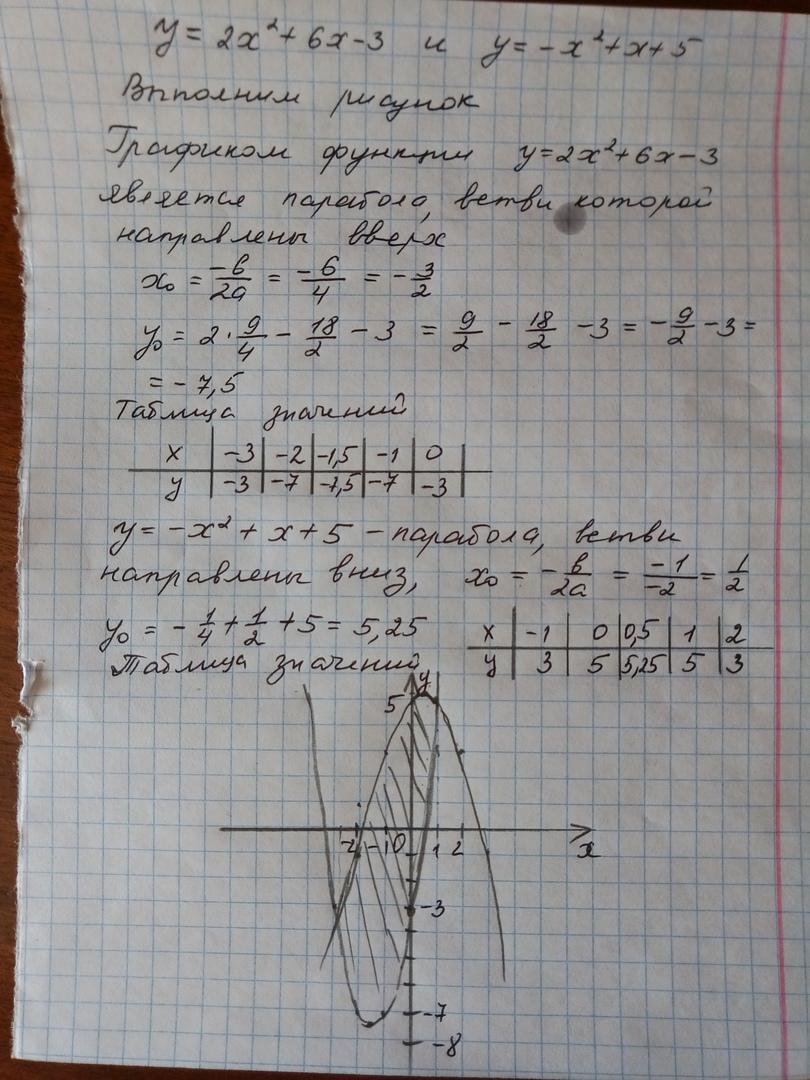 y = 2x² + 6x - 3 и y = -x² + x + 5
Выполним рисунок
Графиком функции y = 2x² + 6x - 3
является парабола, ветви которой
направлены вверх
x₀ = -b/2a = -6/4 = -3/2
y₀ = 2 · 9/4 - 18/2 - 3 = 9/2 - 18/2 - 3 = -9/2 - 3 =
= -7,5
Таблица значений
x | -3 | -2 | -1,5 | -1 | 0
y | -3 | -7 | -7,5 | -7 | -3
y = -x² + x + 5 - парабола, ветви
направлены вниз, x₀ = -b/2a = -1/-2 = 1/2
y₀ = -1/4 + 1/2 + 5 = 5,25
Таблица значений
x | -1 | 0 | 0,5 | 1 | 2
y | 3 | 5 | 5,25 | 5 | 3
y
5
-2 -1 0 1 2 x
-3
-7
-8